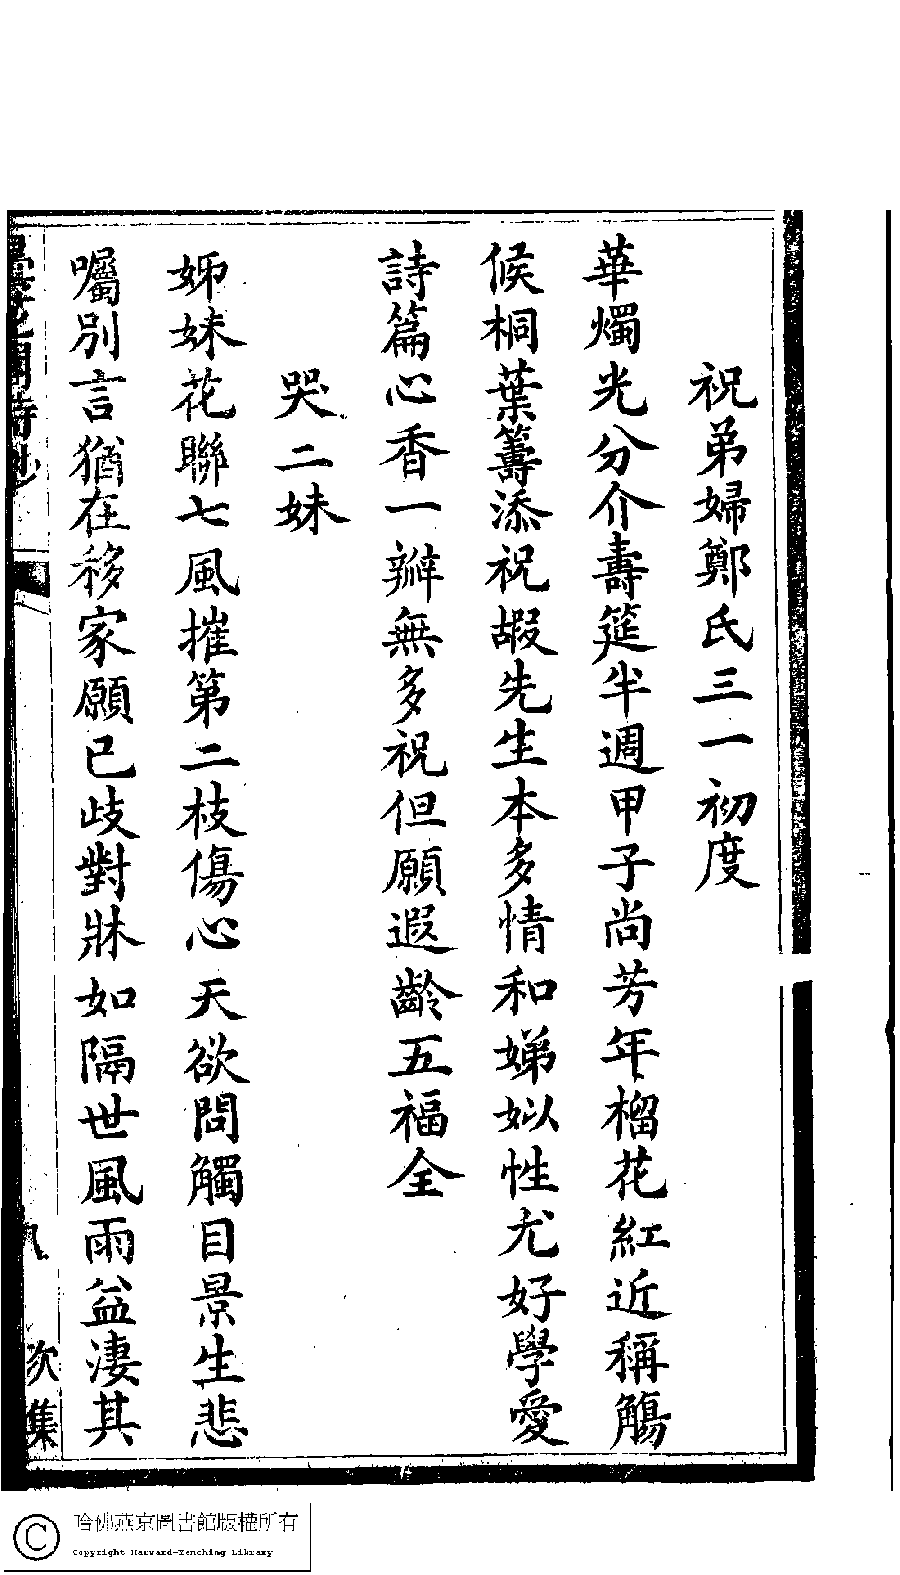 祝弟婦鄭氏三一初度
華燭光分介壽筵半週甲子尚芳年榴花紅近稱觴
候桐葉籌添祝嘏先生本多情和娣姒性尤好學愛
詩篇心香一瓣無多祝但願遐齡五福全
哭二妹
姊妹花聯七風摧第二枝傷心天欲問觸目景生悲
囑別言猶在移家願已歧對牀如隔世風雨益淒其
次集
哈佛燕京圖書館版權所有
Copyright Harvard-Yenching Library